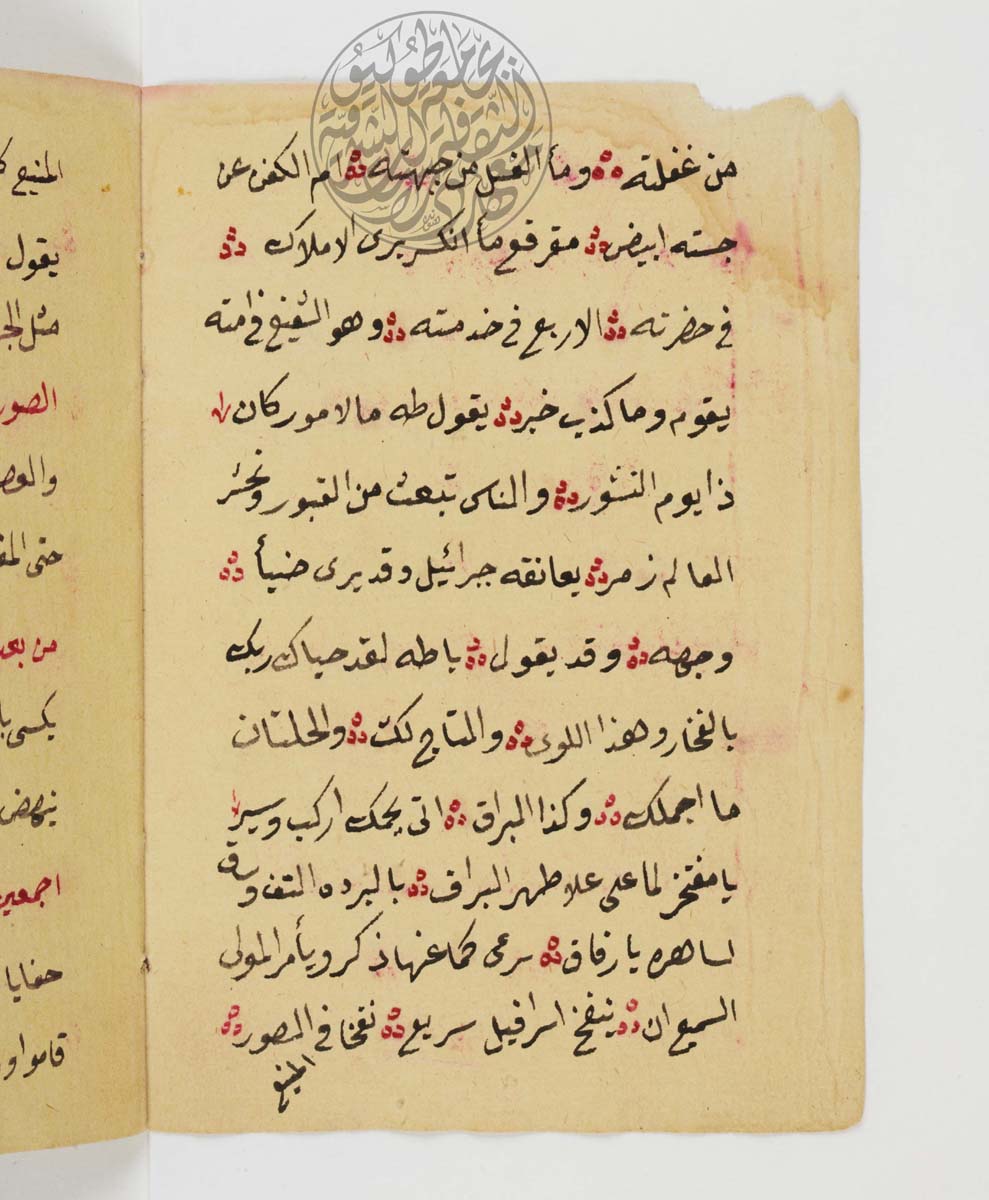 من غفلته وما الغسل من جبهته ام الكفن عن
جسته ابيض مقرقع ما انكسر يرى الاملاك
في حضرته الاربع في خدمته وهو الشفيع في امته
يقوم وما كذب خبر يقول طه ما الامور كان
ذا يوم النشور والناس تبعث من القبور وتحشر
العالم زمر يعانقه جبرائيل وقد يرى ضيأ
وجهه وقد يقول ياطه لقد حياك ربك
بالفخار وهذا اللوى والتاج لك والحلتان
ما اجملك وكذا البراق اتى يحمك اركب وسير
يا مفتخر لما على علا ظهر البراق بالبرده التف وساق
لساهره يا رفاق عنها ذكر ويأمر المولى
السميع ان ينفخ اسرافيل سريع نفخا في الصور
المنيع
المنيع
يقول
مثل
الصور
حتى
من بعد
يكسى
ينهض
اجمعين
حفايا
قاموا